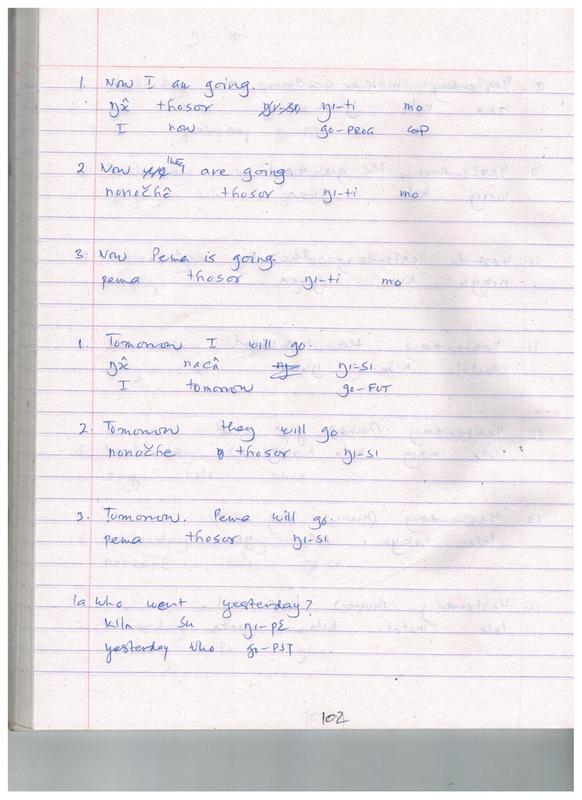 1. Now I am going.
ŋx̂ thosor ŋı-ti mo
I now go-PROG COP
2. Now they are going
nonočhê thosor ŋı-ti mo
3. Now Pema is going.
pema thosor ŋı-ti mo
1. Tomorrow I will go.
ŋx̂ nacʌ̂ ŋı-sı
I tomorrow go-FUT
2. Tomorrow they will go
nonočhe thosor ŋı-sı
3. Tomorrow. Pema will go.
pema thosor ŋı-sı
1a Who went yesterday?
kıla su ŋı-pɛ
yesterday who go-PST
102